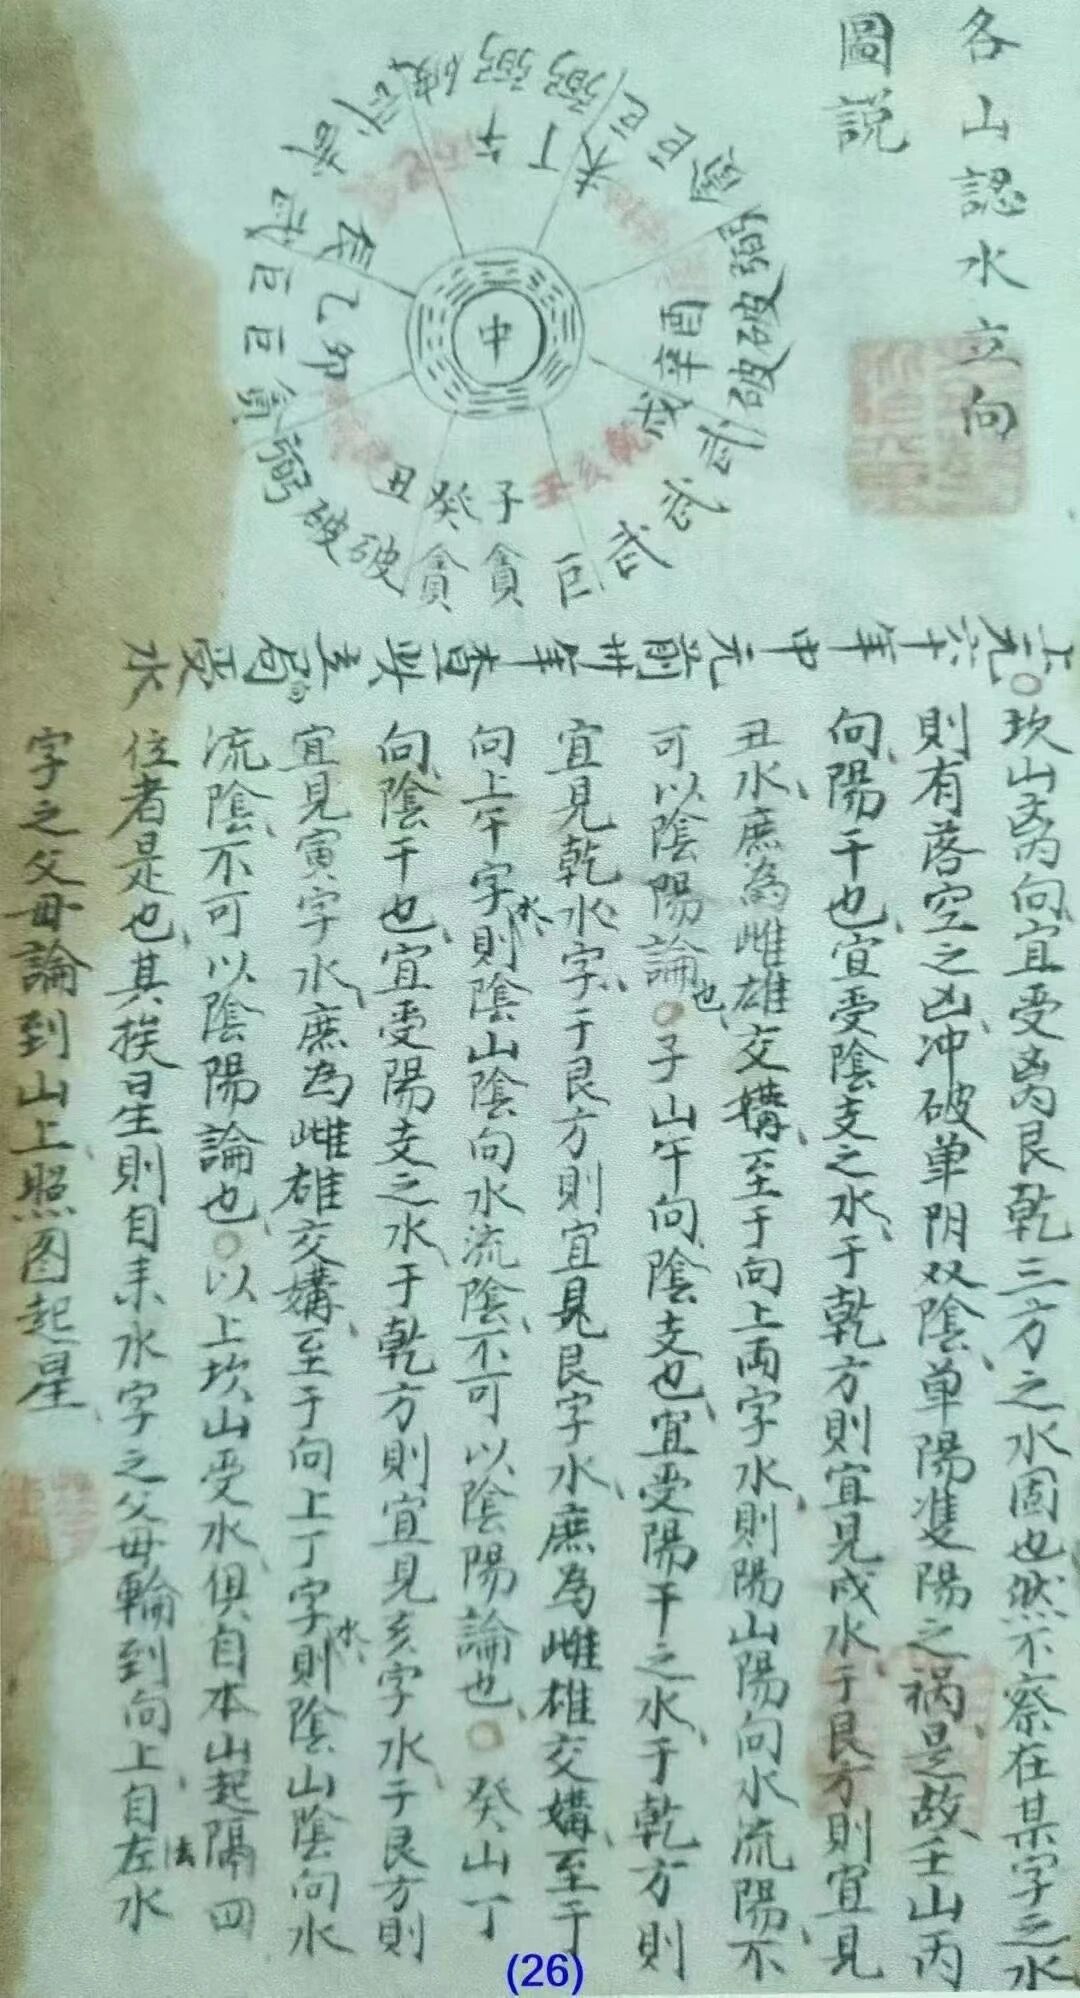 各山認水立向
圖説
中
子
癸
丑
卯
乙
辰
午
丁
未
酉
辛
戌
乾
亥
壬
貪
貪
巨
武
武
武
破
破
弼
廉
巨
巨
弼
弼
弼
破
武
武
武
巨
巨
貪
弼
破
破
上元六十年中元前卅年看此主局受水
坎山离向宜受离艮乾三方之水固也然不察在某字之水
則有落空之凶冲破单阴双陰单陽隻陽之祸是故壬山丙
向陽干也宜受陰支之水于乾方則宜見戌水于艮方則宜見
丑水庶為雌雄交媾至于向上两字水則陽山陽向水流陽不
可以陰陽論也○子山午向陰支也宜受陽干之水于乾方則
宜見乾水字于艮方則宜見艮字水庶為雌雄交媾至于
向上午字水則陰山陰向水流陰不可以陰陽論也○癸山丁
向陰干也宜受陽支之水于乾方則宜見亥字水于艮方則
宜見寅字水庶為雌雄交媾至于向上丁字水則陰山陰向水
流陰不可以陰陽論也○以上坎山受水俱自本山起隔四
位者是也其挨星法則自来水字之父母輪到向上自左水
字之父母論到山上照图起星
(26)